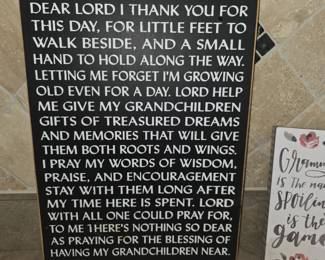 DEAR LORD I THANK YOU FOR
THIS DAY, FOR LITTLE FEET TO
WALK BESIDE, AND A SMALL
HAND TO HOLD ALONG THE WAY.
LETTING ME FORGET I'M GROWING
OLD EVEN FOR A DAY. LORD HELP
ME GIVE MY GRANDCHILDREN
GIFTS OF TREASURED DREAMS
AND MEMORIES THAT WILL GIVE
THEM BOTH ROOTS AND WINGS.
I PRAY MY WORDS OF WISDOM,
PRAISE, AND ENCOURAGEMENT
STAY WITH THEM LONG AFTER
MY TIME HERE IS SPENT. LORD
WITH ALL ONE COULD PRAY FOR,
TO ME THERE'S NOTHING SO DEAR
AS PRAYING FOR THE BLESSING OF
HAVING MY GRANDCHILDREN NEAR.
is the
Spoilin
is the
game